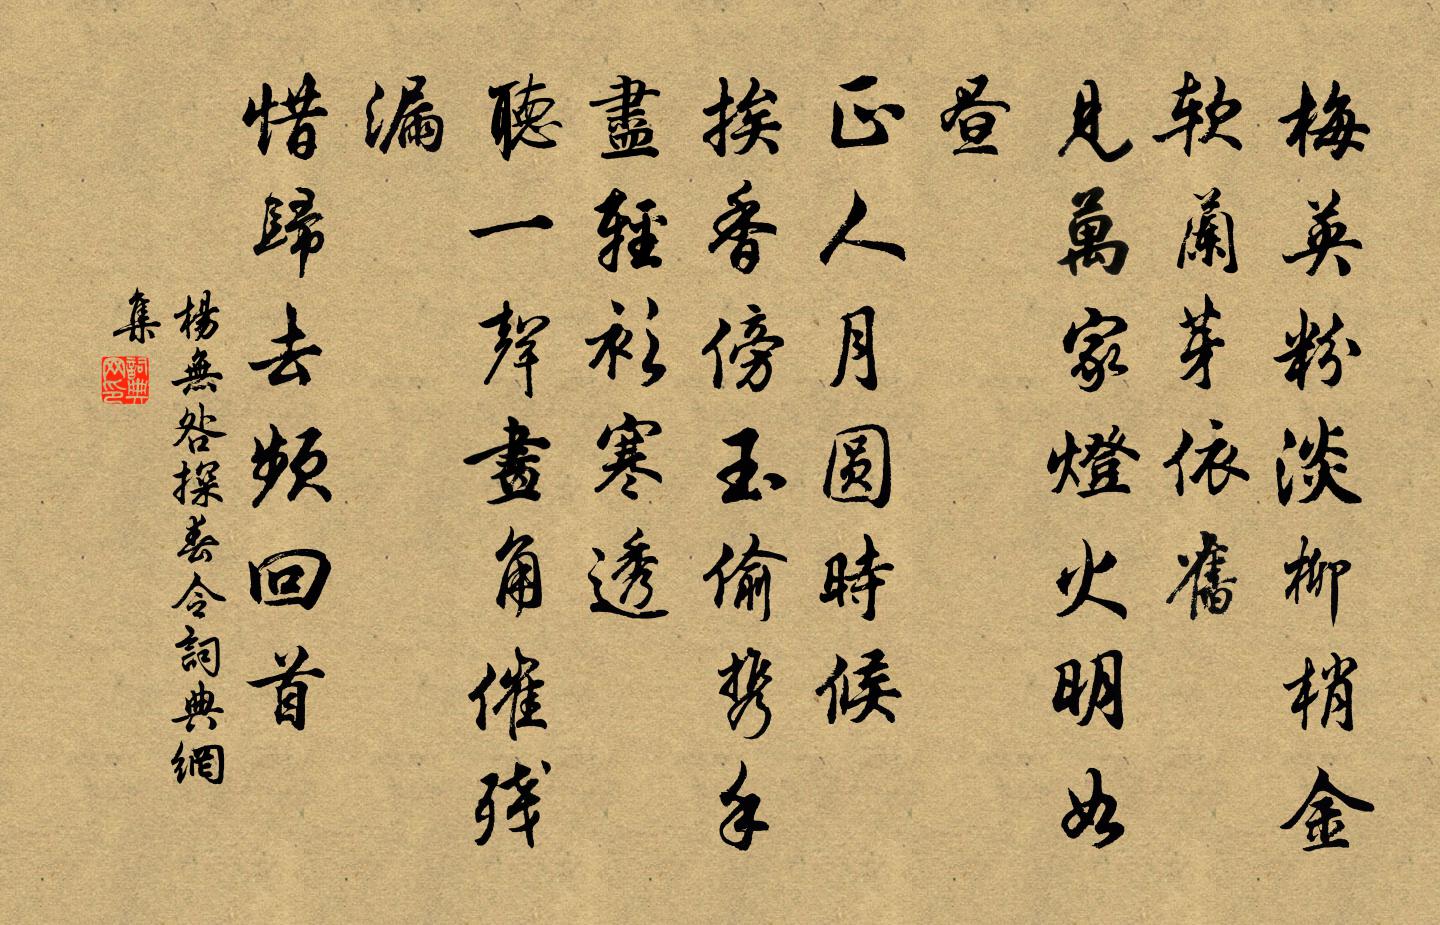 梅英粉淡柳梢金
軟蘭芽依舊
見萬家燈火明如
晝
正人月圓時候
挨香傍玉偷携手
盡輕衫寒透
聽一聲畫角催殘
漏
惜歸去頻回首
楊無咎探春令詞典網
集
詞典网印